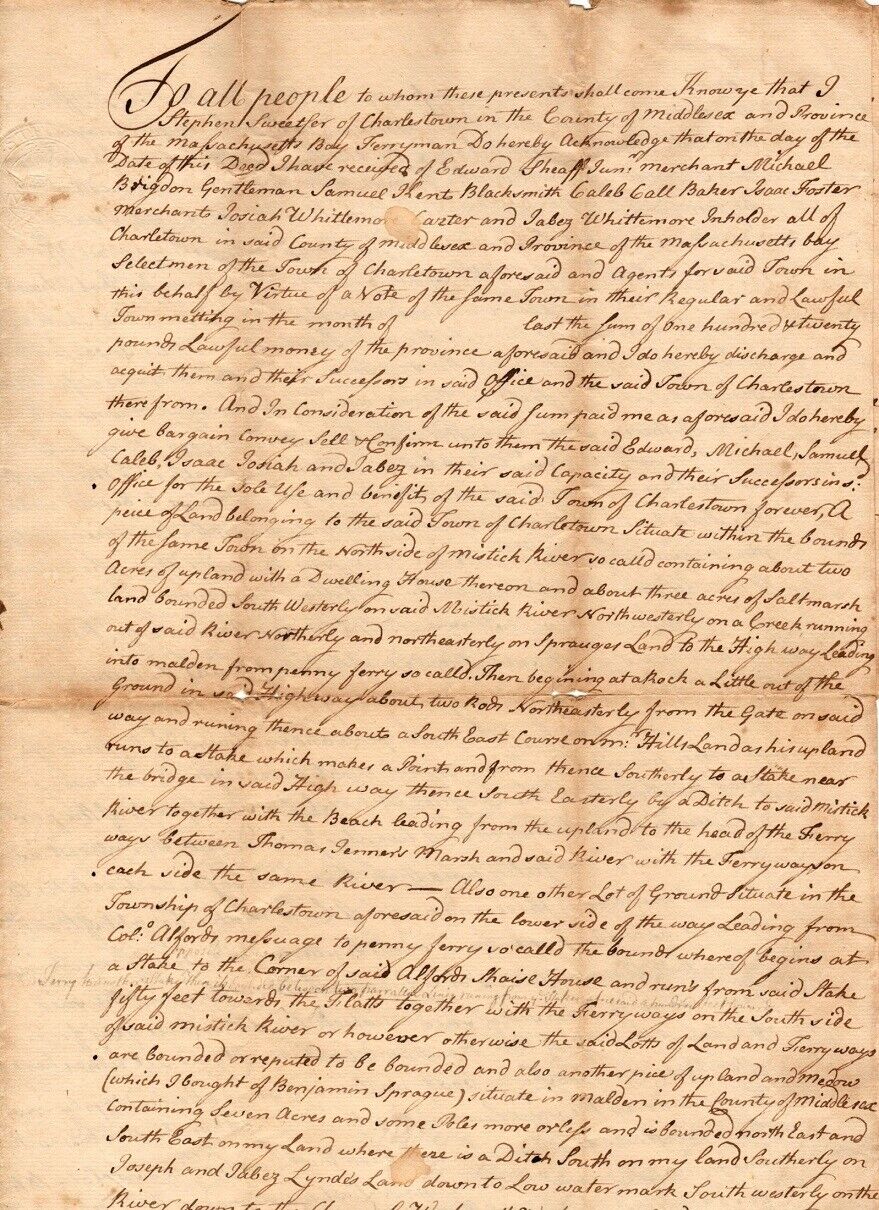 To all people to whom these presents shall come Know ye that I
Stephen Sweetser of Charlestown in the County of Middlesex and Province
of the Massachusetts Bay Ferryman Do hereby Acknowledge that on the day of the
Date of this Deed I have received of Edward Sheaff Junr. merchant Michael
Brigdon Gentleman Samuel Kent Blacksmith Caleb Call Baker Isaac Foster
merchant Josiah Whittemore and Jabez Whittemore Inholder all of
Charletown in said County of middlesex and Province of the Massachusetts bay
Selectmen of the Town of Charletown aforesaid and Agents for said Town in
this behalf by Virtue of a Vote of the same Town in their Regular and Lawful
Town metting in the month of last the sum of one hundred & twenty
pounds Lawful money of the province aforesaid and I do hereby discharge and
acquit them and their Successors in said Office and the said Town of Charlestown
therefrom. And In Consideration of the said sum paid me as aforesaid I do hereby
give bargain Convey Sell & Confirm unto them the said Edward, Michael, Samuel
Caleb, Isaac Josiah and Jabez in their said Capacity and their Successors in sd.
Office for the sole Use and benifit of the said Town of Charlestown forever, A
peice of Land belonging to the said Town of Charletown Situate within the bounds
of the same Town on the North side of mistick River so calld containing about two
Acres of upland with a Dwelling House thereon and about three acres of Saltmarsh
land bounded South Westerly on said Mistick River Northwesterly on a Creek running
out of said River Northerly and northeasterly on Sprauges Land to the High way Leading
into malden from penny ferry so calld. Then begining at a Rock a Little out of the
Ground in said High way about two Rods Northeasterly from the Gate on said
way and runing thence about a South East Course on mr. Hills Land as his upland
runs to a Stake which makes a Point and from thence Southerly to a Stake near
the bridge in said High way thence South Easterly by a Ditch to said Mistick
River together with the Beach leading from the upland to the head of the Ferry
ways between Thomas Jenner's Marsh and said River with the Ferry ways on
each side the same River — Also one other Lot of Ground Situate in the
Township of Charlestown aforesaid on the lower side of the way Leading from
Colo. Alfords message to penny ferry so calld the bounds whereof begins at
a Stake to the Corner of said Alfords Shaise House and run's from said Stake
fifty feet towards the Flatts together with the Ferry ways on the South side
of said mistick River or however otherwise the said Lotts of Land and Ferry ways
are bounded or reputed to be bounded and also another pice of upland and medow
(which I bought of Benjamin Sprague) situate in malden in the County of Middlesex
containing Seven Acres and some Poles more or less and is bounded north East and
South East on my Land where there is a Ditch South on my land Southerly on
Joseph and Jabez Lynde's Land down to Low water mark South westerly on the
River down to the